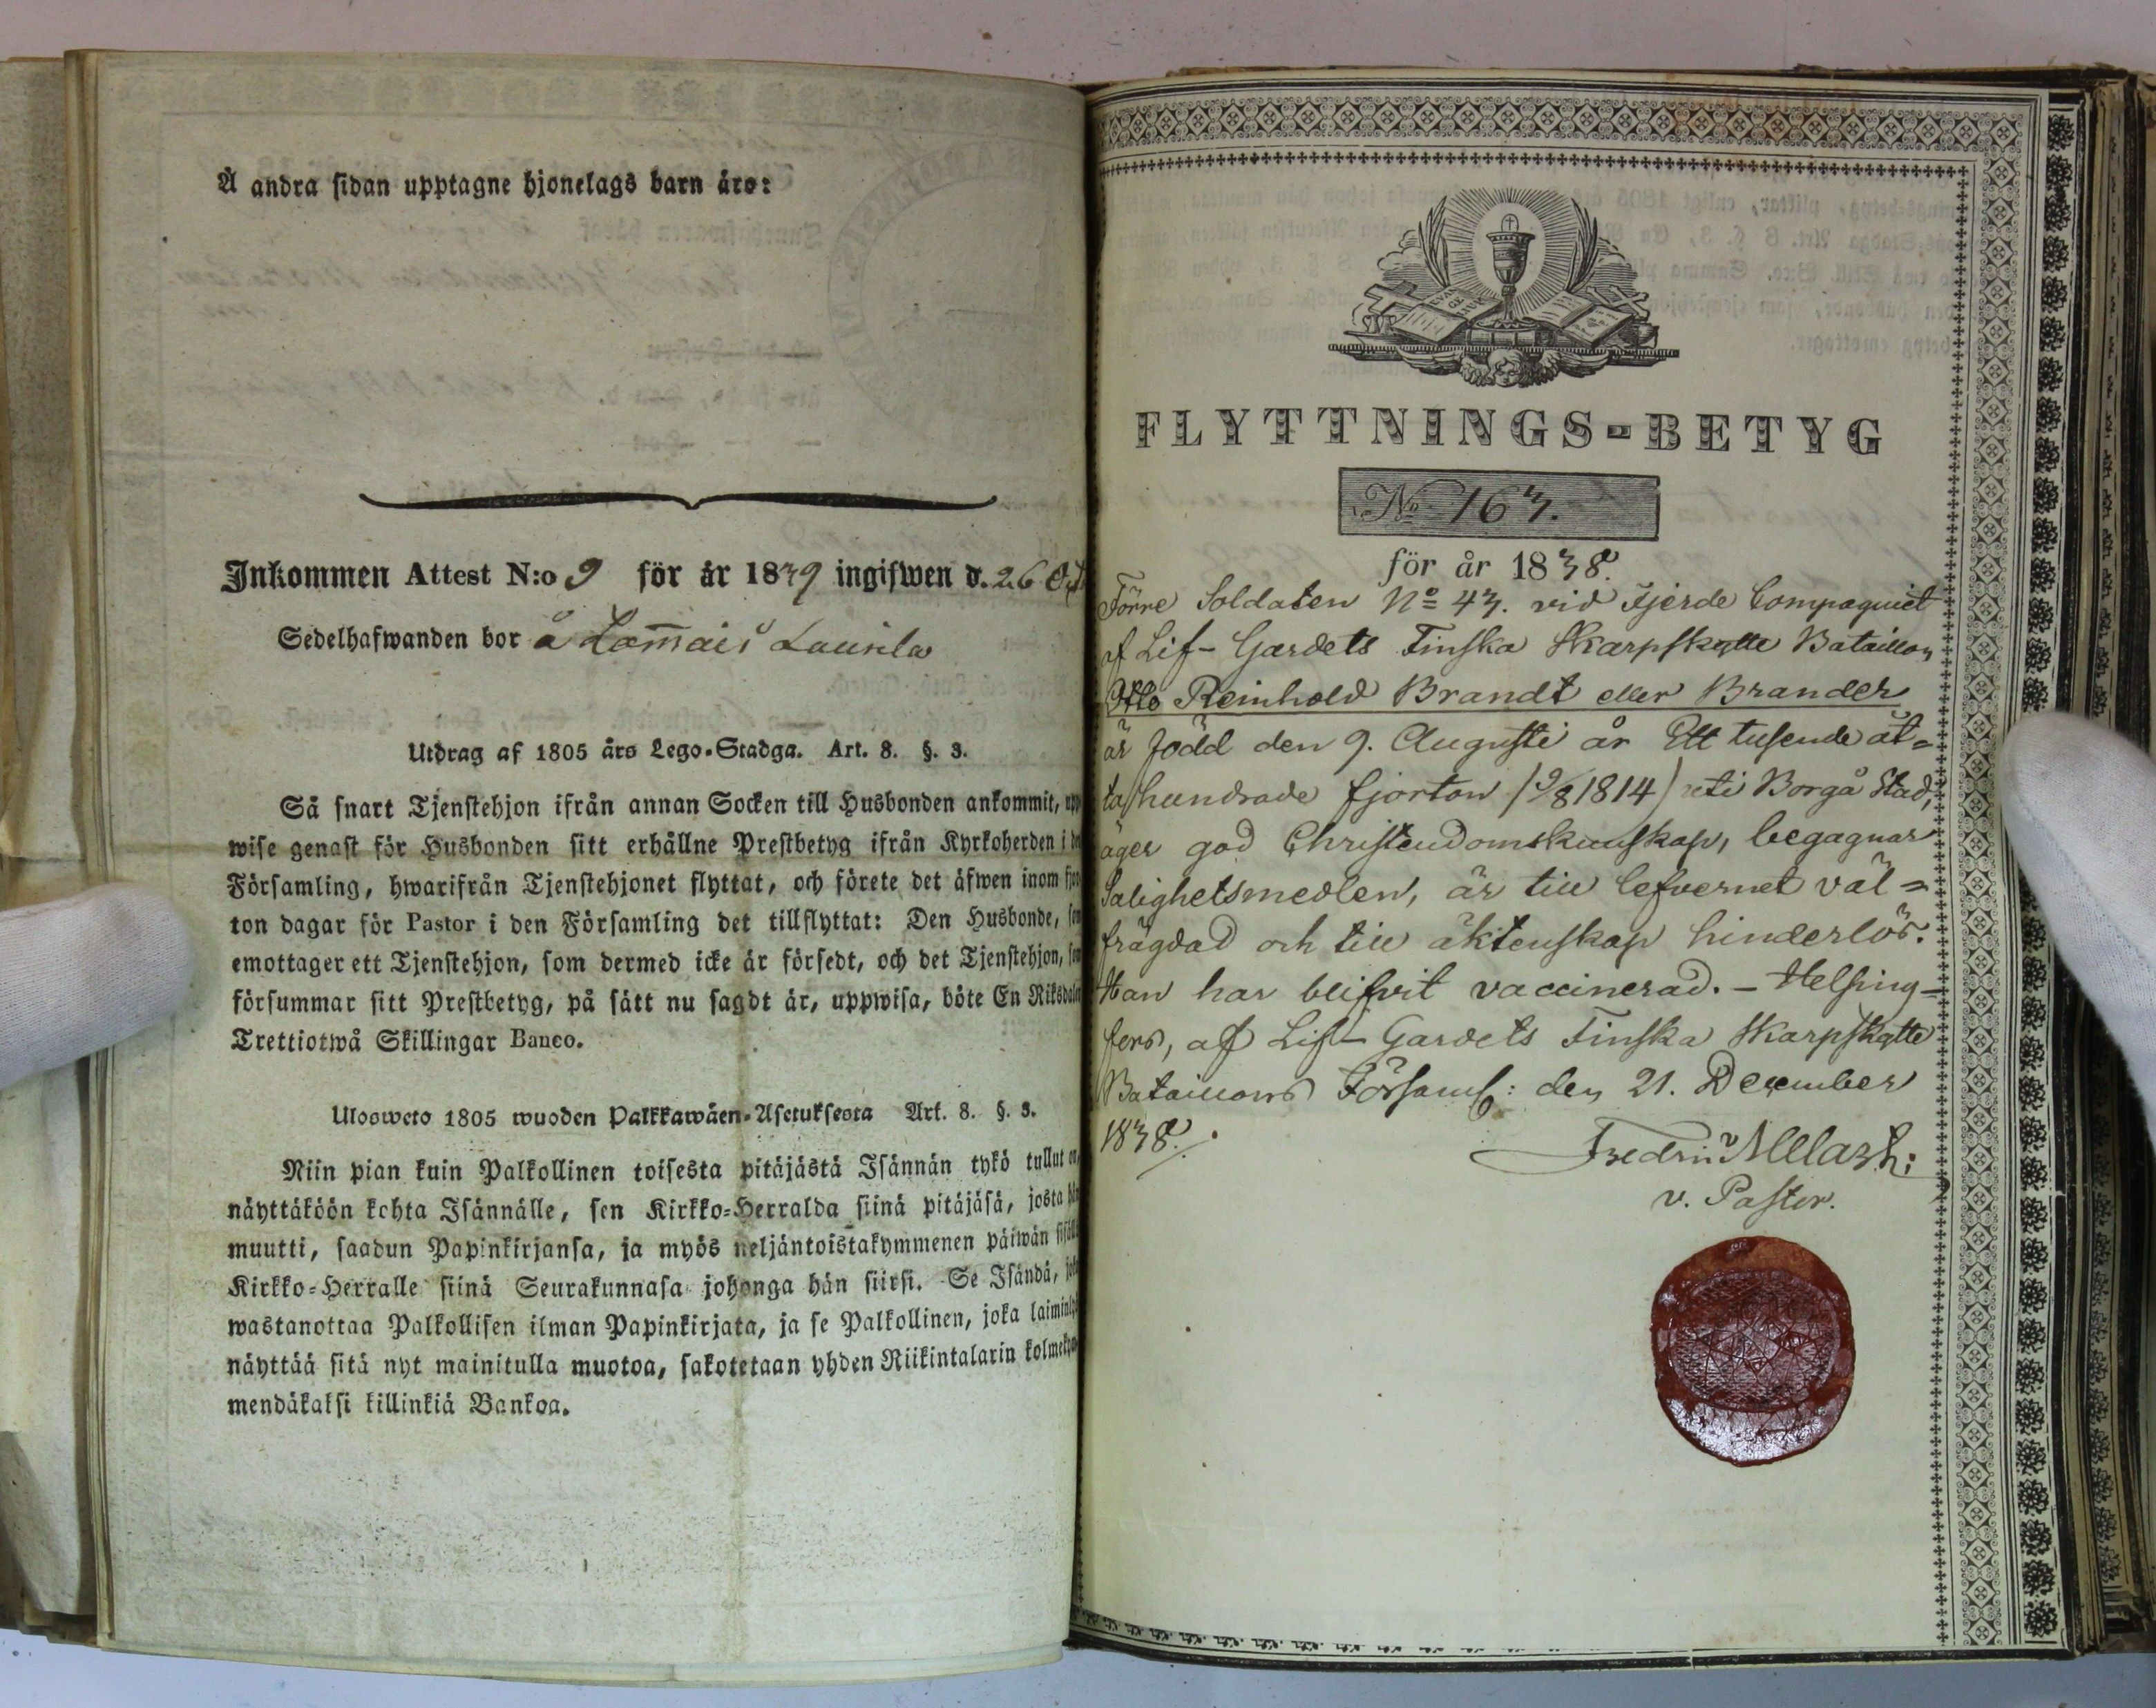 Å andra sidan upptagne hjonelags barn äro:
Inkommen Attest N:o 9 för år 1839 ingifwen d. 26 Oct
Sedelhafwanden bor å Lam̅ais Laurila
Utdrag af 1805 års Lego-Stadga. Art. 8. §. 3.
Så snart Tjenstehjon ifrån annan Socken till Husbonden ankommit, upp
wise genast för Husbonden sitt erhållne Prestbetyg ifrån Kyrkoherden i den
Församling, hwarifrån Tjenstehjonet flyttat, och förete det äfwen inom fjor
ton dagar för Pastor i den Församling det tillflyttat: Den Husbonde, som
emottager ett Tjenstehjon, som dermed icke är försedt, och det Tjenstehjon, som
försummar sitt Prestbetyg, på sätt nu sagdt är, uppwisa, böte En Riksdaler
Trettiotwå Skillingar Banco.
Ulosweto 1805 wuoden Palkkawäen-Asetuksesta Art. 8. §. 3.
Niin pian kuin Palkollinen toisesta pitäjästä Isännän tykö tullut on,
näyttäköön kohta Isännälle, sen Kirkko-Herralda siinä pitäjäsä, josta hän
muutti, saadun Papinkirjansa, ja myös neljäntoistakymmenen päiwän sisällä
Kirkko-Herralle siinä Seurakunnasa johonga hän siirsi. Se Isändä, joka
wastanottaa Palkollisen ilman Papinkirjata, ja se Palkollinen, joka laiminlyö
näyttää sitä nyt mainitulla muotoa, sakotetaan yhden Riikintalarin kolmekym
mendäkaksi killinkiä Bankoa.
EVAN GE LIUM
FLYTTNINGS-BETYG
No 163.
för år 1838.
Förre Soldaten No 43. vid Fjerde Compagniet
af Lif-Gardets Finska Skarpskytte Bataillon
Otto Reinhold Brandt eller Brander
är född den 9. Augusti år Ett tusende åt=
ta hundrade fjorton (9/8 1814) uti Borgå Stad,
äger god Christendomskunskap, begagnar
Salighetsmedlen, är till lefvernet väl=
frägdad och till äktenskap hinderlös.
Han har blifvit vaccinerad. - Helsing-
fors, af Lif-Gardets Finska Skarpskytte
Bataillons Församl: den 21. December
1838.
v. Pastor.